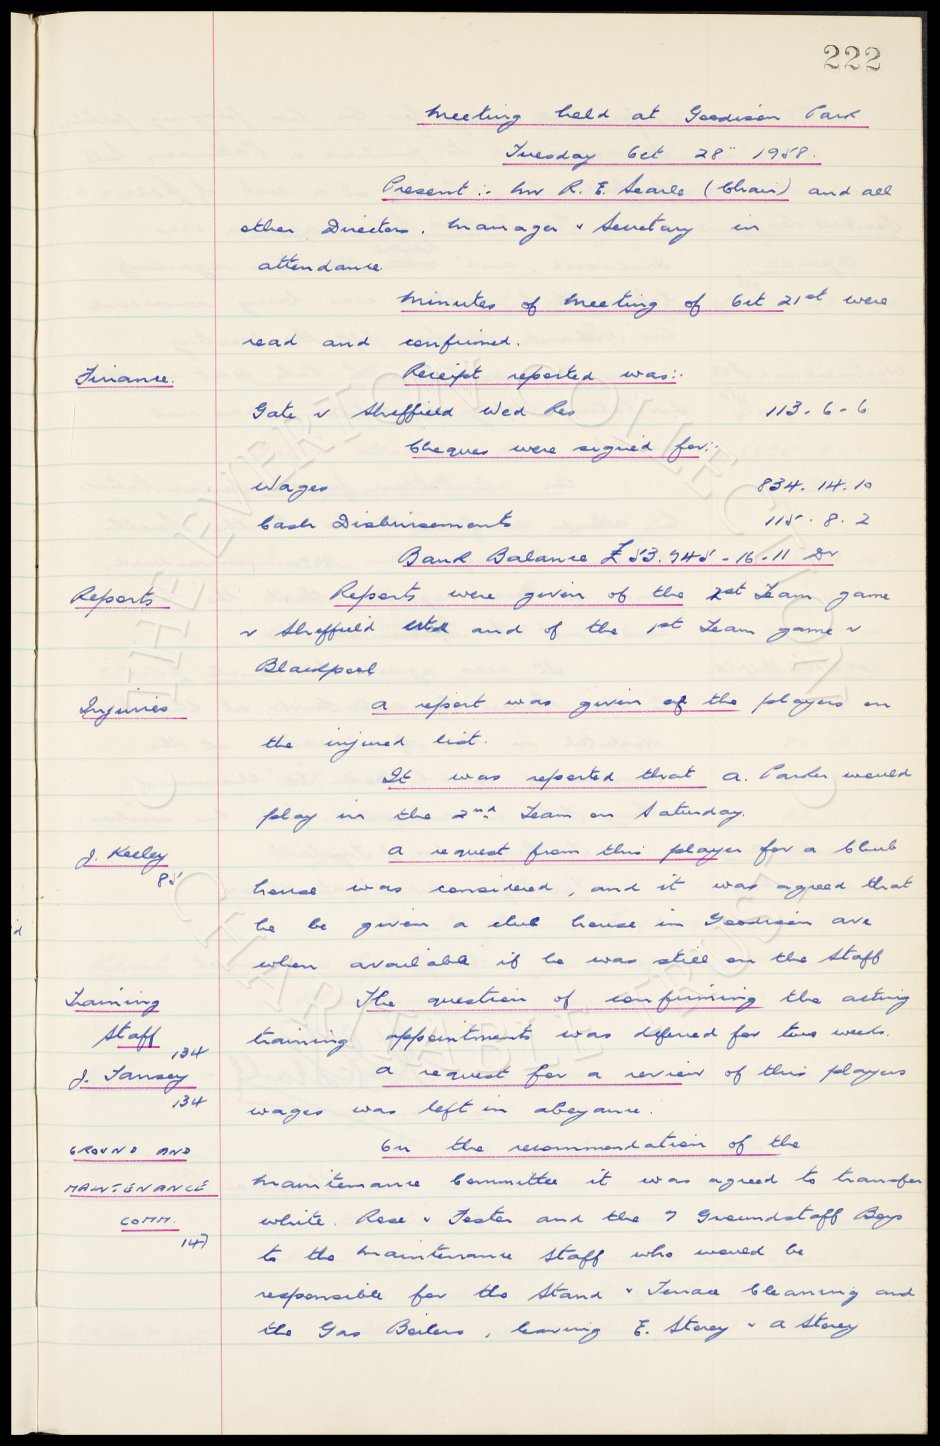 222
Meeting held at Goodison Park
Tuesday Oct 28" 1958.
Present :- Mr R. E. Searle (Chair) and all
other Directors. Manager & Secretary in
attendance
Minutes of Meeting of Oct 21st were
read and confirmed.
Finance. Receipt reported was:-
Gate v Sheffield Wed Res 113-6-6
Cheques were signed for:-
Wages 834.14.10
Cash Disbursements 115.8.2
Bank Balance £53.945-16-11 Dr
Reports Reports were given of the 2st Team game
v Sheffield Wed and of the 1st Team game v
Blackpool
Injuries A report was given of the players on
the injured list.
It was reported that A. Parker would
play in the 2nd Team on Saturday.
J. Keeley A request from this player for a Club
85 house was considered, and it was agreed that
he be given a club house in Goodison Ave
when available if he was still on the Staff
Training The question of confirming the acting
Staff training appointments was deferred for two weeks.
134
J. Tansey A request for a review of this players
134 wages was left in abeyance.
GROUND AND On the recommendation of the
MAINTENANCE Maintenance Committee it was agreed to transfer
COMM. White. Rose & Foster and the 7 Groundstaff Boys
147 to the Maintenance Staff who would be
responsible for the Stand & Terrace Cleaning and
the Gas Boilers, leaving E. Storey & A Storey
THE EVERTON COLLECTION
CHARITABLE TRUST